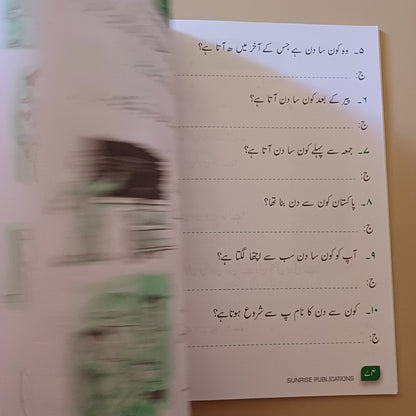 ۵۔ وہ کون سا دن ہے جس کے آخر میں ھ آتا ہے؟
ج:
۶۔ پیر کے بعد کون سا دن آتا ہے؟
ج:
۷۔ جمعہ سے پہلے کون سا دن آتا ہے؟
ج:
۸۔ پاکستان کون سے دن بنا تھا؟
ج:
۹۔ آپ کو کون سا دن سب سے اچھا لگتا ہے؟
ج:
۱۰۔ کون سے دن کا نام پ سے شروع ہوتا ہے؟
ج:
SUNRISE PUBLICATIONS ۷۴